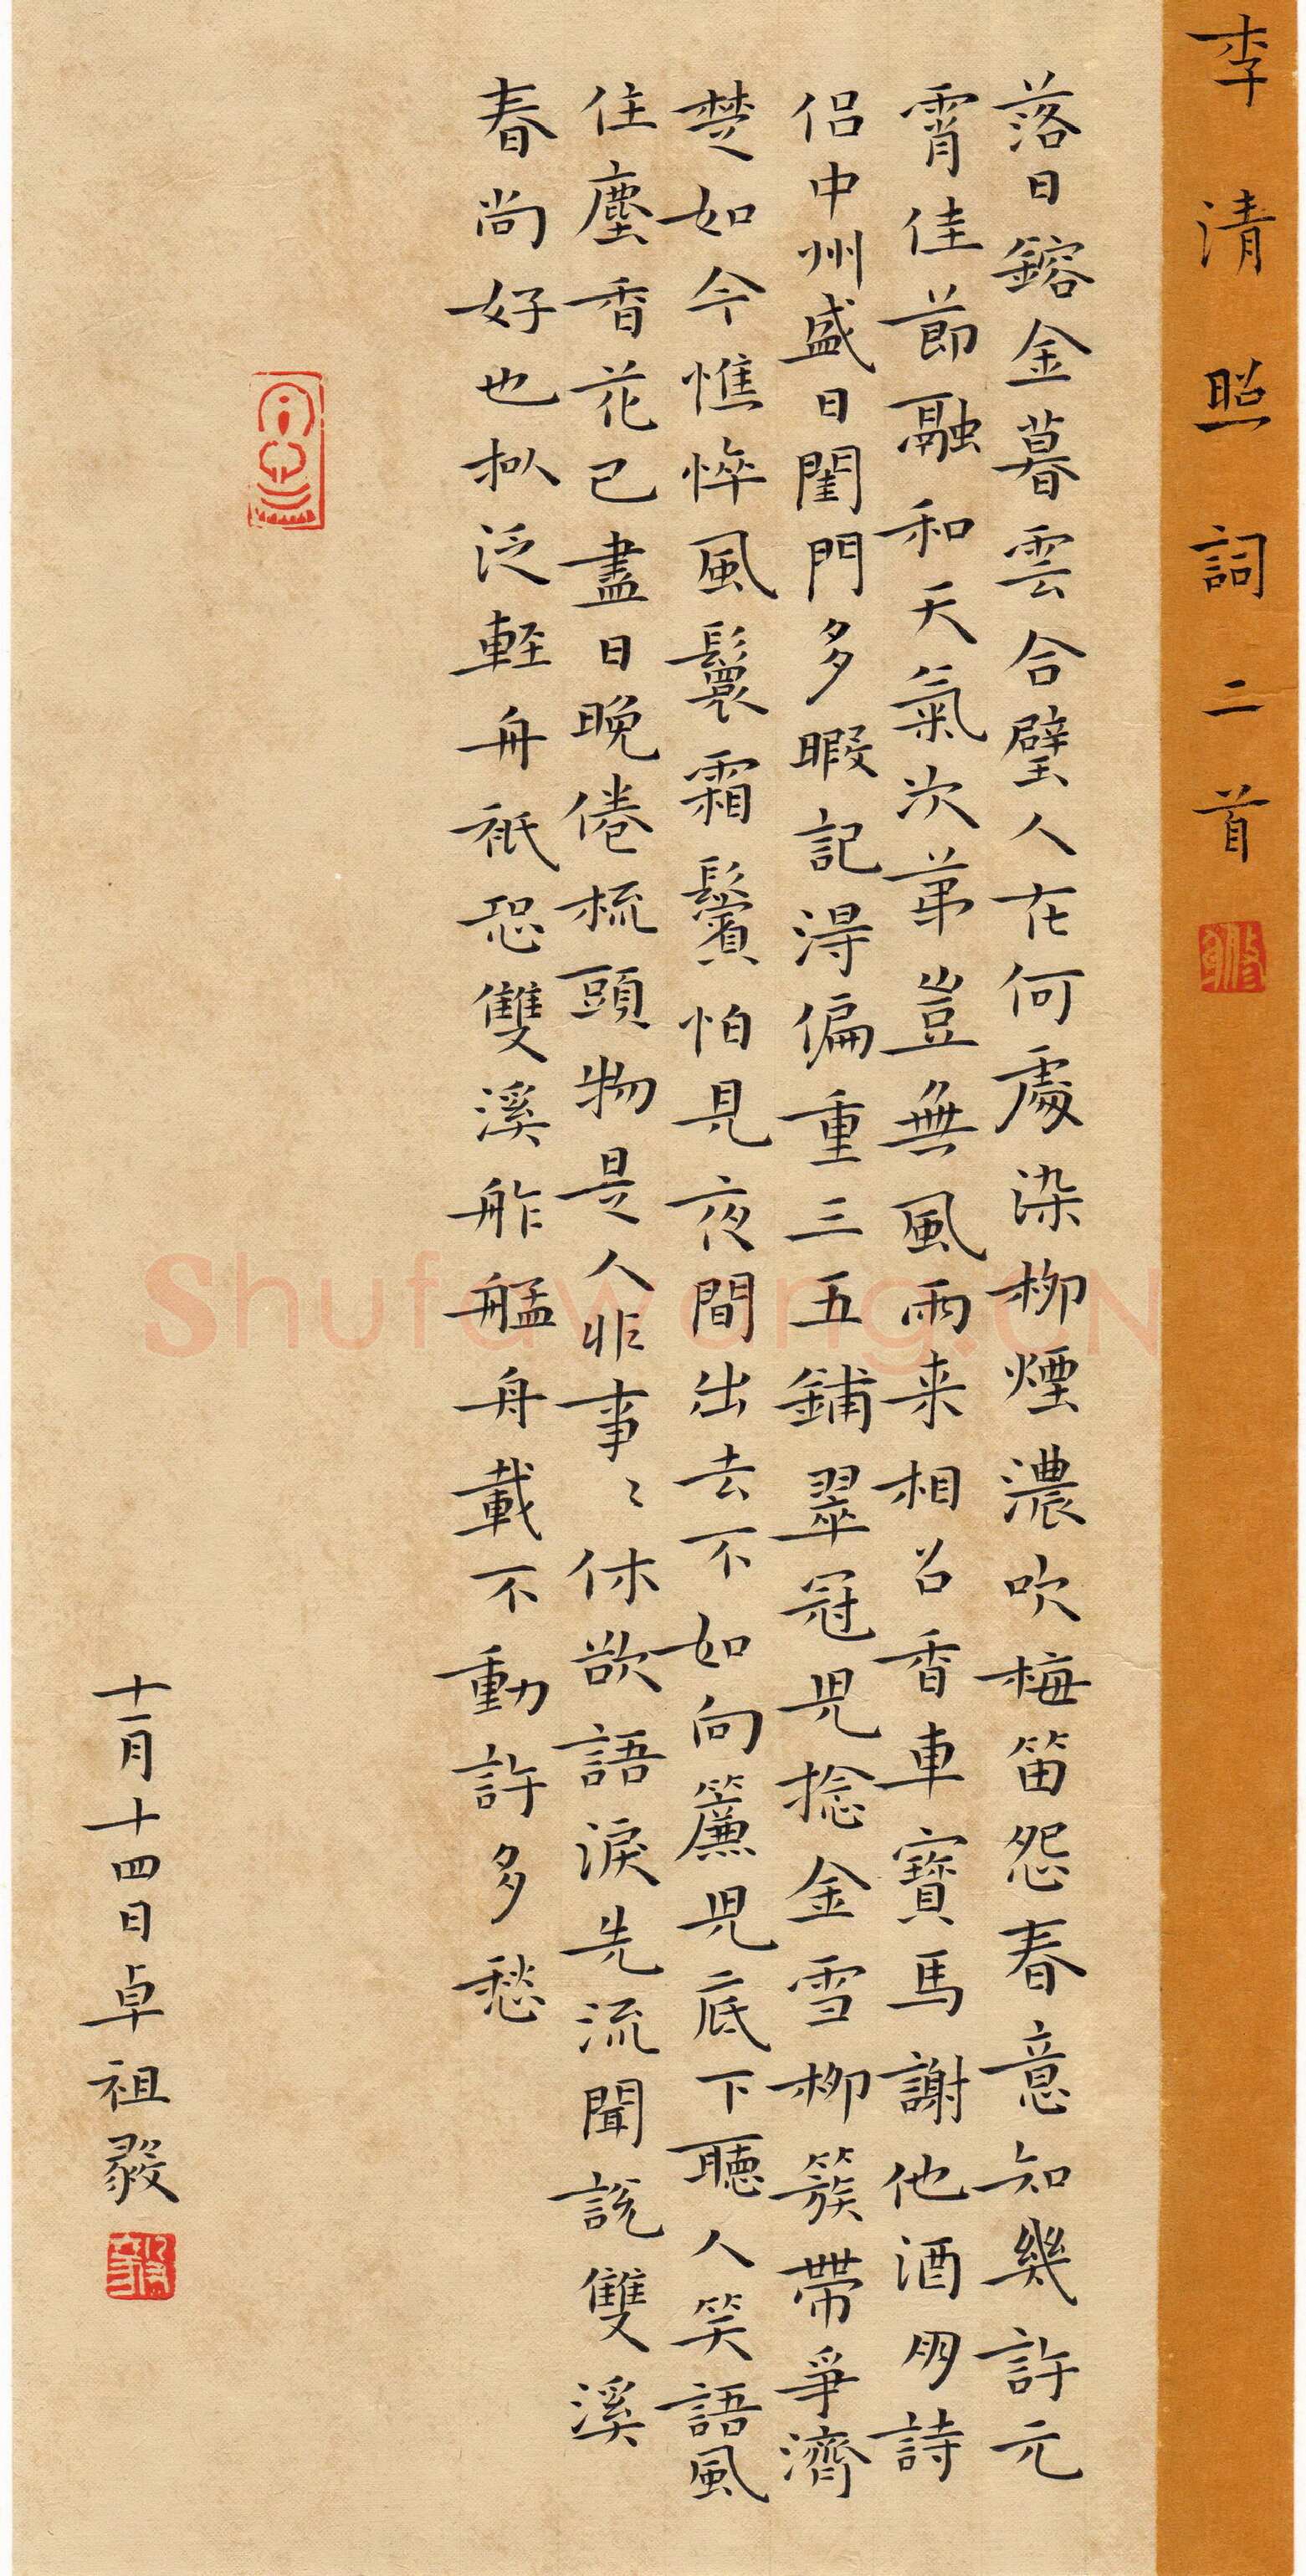 李清照詞二首
落日鎔金暮雲合璧人在何處染柳煙濃吹梅笛怨春意知幾許元
宵佳節融和天氣次苐豈無風雨来相召香車寶馬謝他酒朋詩
侣中州盛日閨門多暇記得偏重三五鋪翠冠兒捻金雪柳簇帶爭濟
楚如今憔悴風鬟霜鬢怕見夜間出去不如向簾兒底下聽人笑語風
住塵香花已盡日晚倦梳頭物是人非事〻休欲語淚先流聞説雙溪
春尚好也拟泛輕舟衹恐雙溪舴艋舟載不動許多愁
十一月十四日卓祖毅
Shufawang.CN